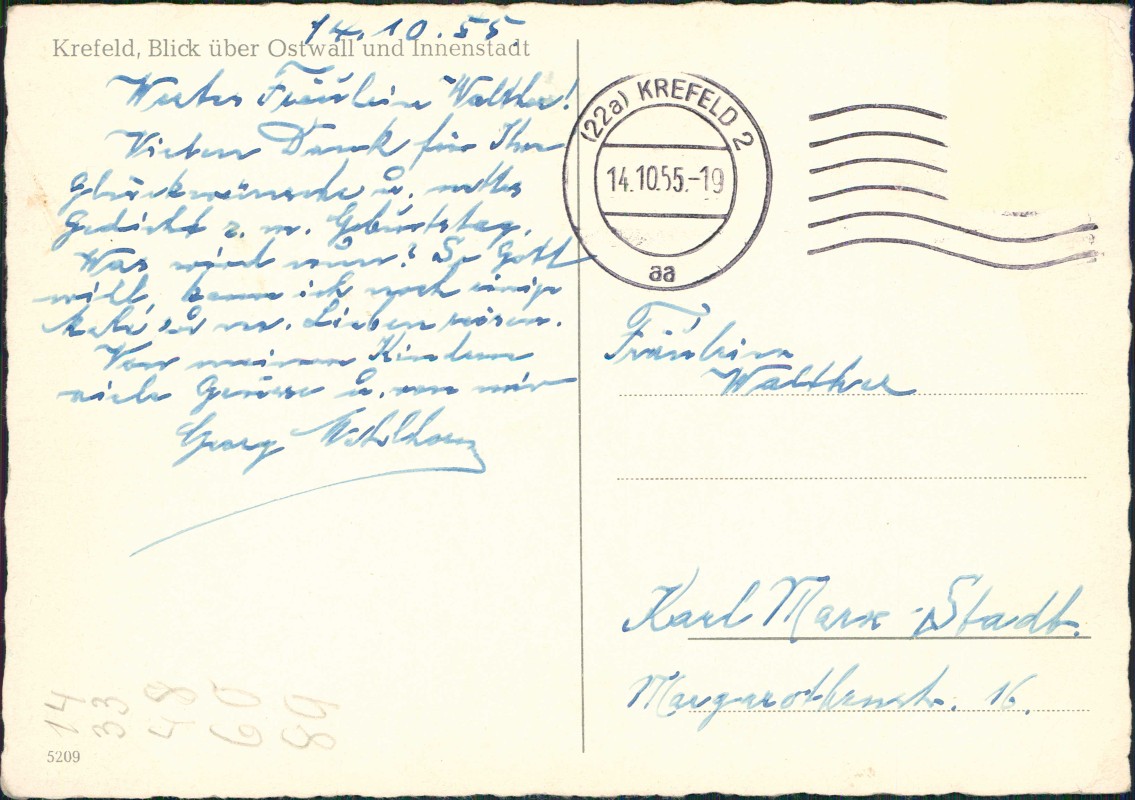 14.10.55.
Krefeld, Blick über Ostwall und Innenstadt
Wertes Fräulein Walther!
Vielen Dank für Ihre
Glückwünsche u. nettes
Gedicht z. m. Geburtstag.
Was wird nun? So Gott
will, kann ich noch einige
Male zu m. Lieben reisen.
Von meinen Kindern
viele Grüsse u. von mir
Georg
(22a) KREFELD 2
14.10.55.-19
aa
Fräulein
Walther
Karl Marx-Stadt.
Margarethenstr. 16.
14
33
48
60
89
5209